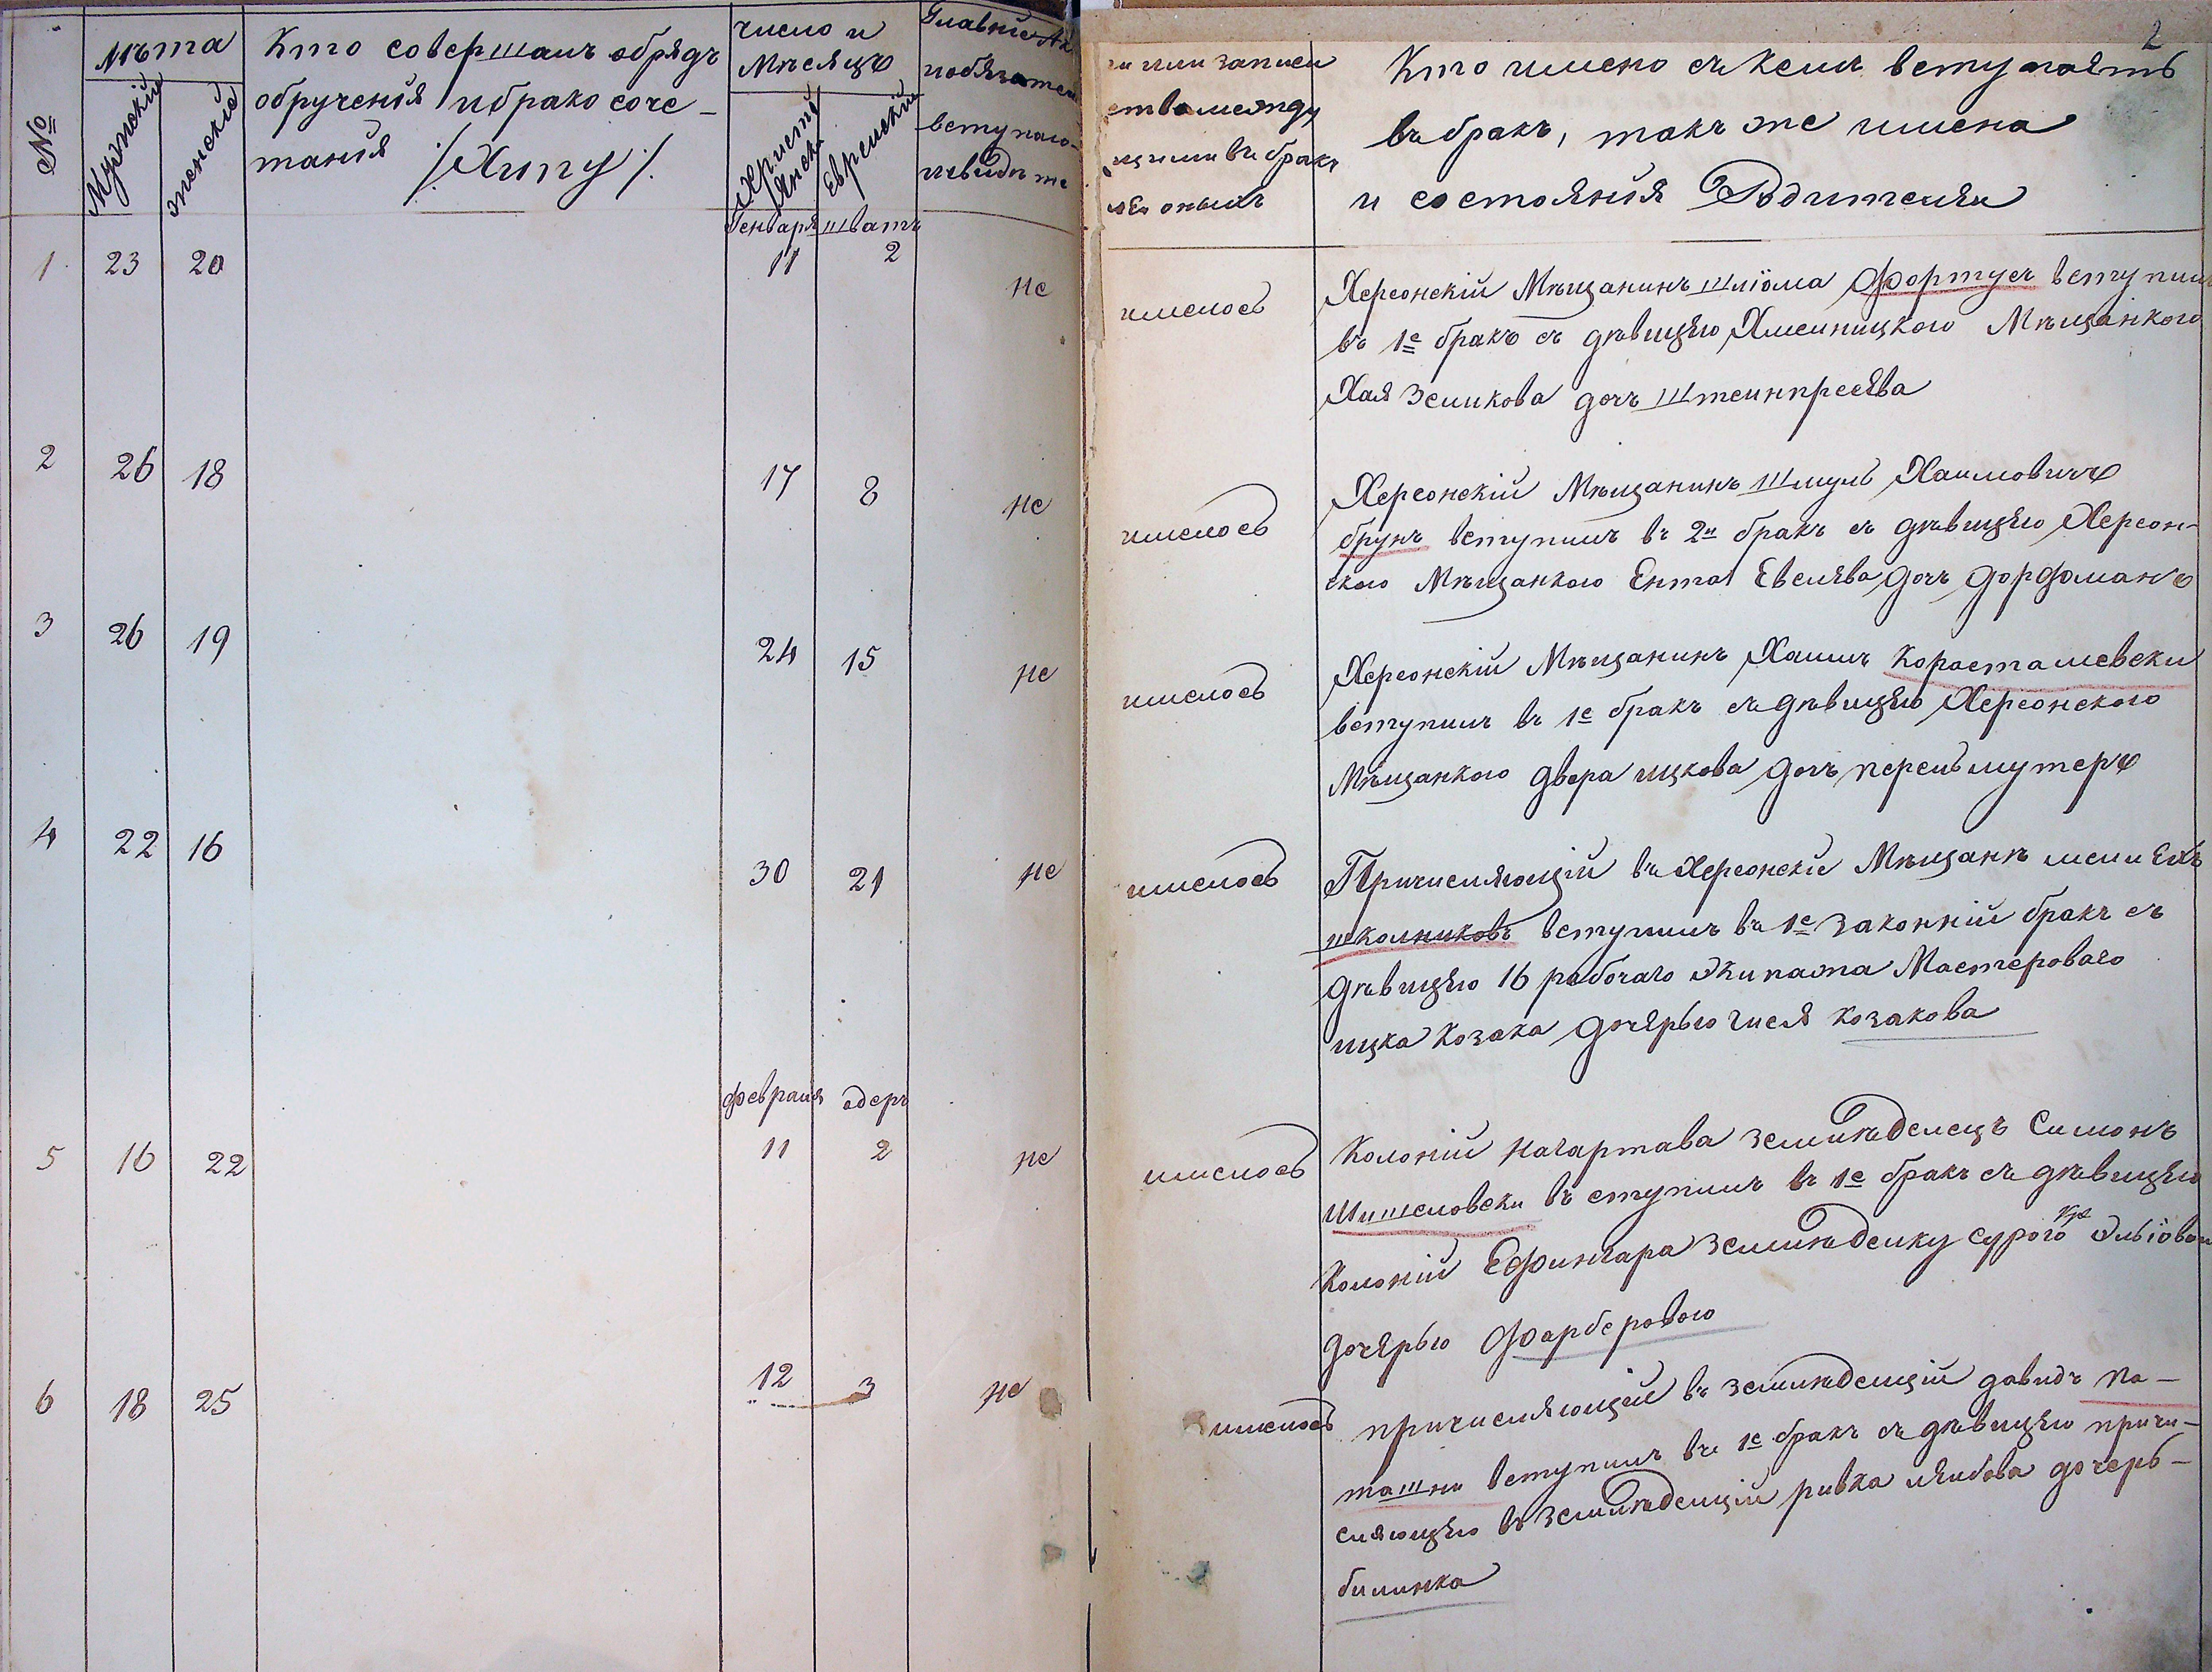 2
№
Лѣта
Мужескіе
женскіе
Кто совершалъ обрядъ
обрученія и брако соче-
танія /: Хипу :/
число и
Мѣсяцъ
Христі
янски
Еврейскій
Главніе Ак
и обязател
вступаю-
и свидѣте
ги или записи
ства между
щими въ бракъ
ля оныхъ
Кто имено съ кемъ вступаетъ
въ бракъ, такъ же имена
и состоянія Родителяи
Генваря Шватъ
1 23 20 11 2 не имелось
Херсонскій Мѣщанинъ Шліома Фортус вступил
въ 1е бракъ съ дѣвицею Хмелницкого Мѣщанкого
Хая Зеликова дочъ Штеинпресева
2 26 18 17 8 не имелось
Херсонскій Мѣщанинъ Шмуль Хаимовичъ
брунъ вступилъ въ 2й бракъ съ дѣвицею Херсон-
ского Мѣщанкого Ента Евелева дочъ Дорфоманъ
3 26 19 24 15 не имелось
Херсонскій Мѣщанинъ Хаимъ Коросташевски
вступилъ въ 1е бракъ съ дѣвицею Херсонского
Мѣщанкого Двера ицкова дочъ перельмутеръ
4 22 16 30 21 не имелось
Причисляющій въ Херсонскіе Мѣщанъ мени Ехъ
школниковъ вступилъ въ 1е законній бракъ съ
дѣвицею 16 рабочаго Экипажа Мастероваго
ицка Козака дочерью гися Козакова
Февраля адеръ
5 16 22 11 2 не имелось
Колоніи Нагартава земленделецъ Симонъ
Шишеловски въ ступилъ въ 1е бракъ съ дѣвицею
Колоніи Ефингара земленделку сурого Эльіовои
дочерью Фарберового
6 18 25 12 3 не имелось
причисляющій въ земленделціи давидъ па-
ташни вступилъ въ 1е бракъ съ дѣвицею причи-
сляющею въ земленделціи ривка лейбова дочерь-
билинка